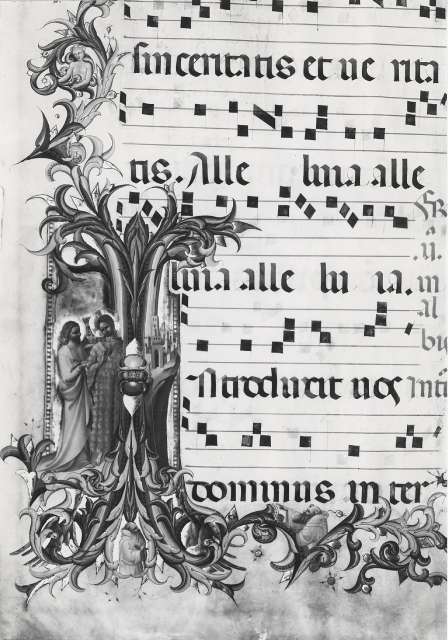 sinceritatis et ue rita
tis. Alle luia alle
luia alle lu ia.
INtroduxit uos
dominus in ter